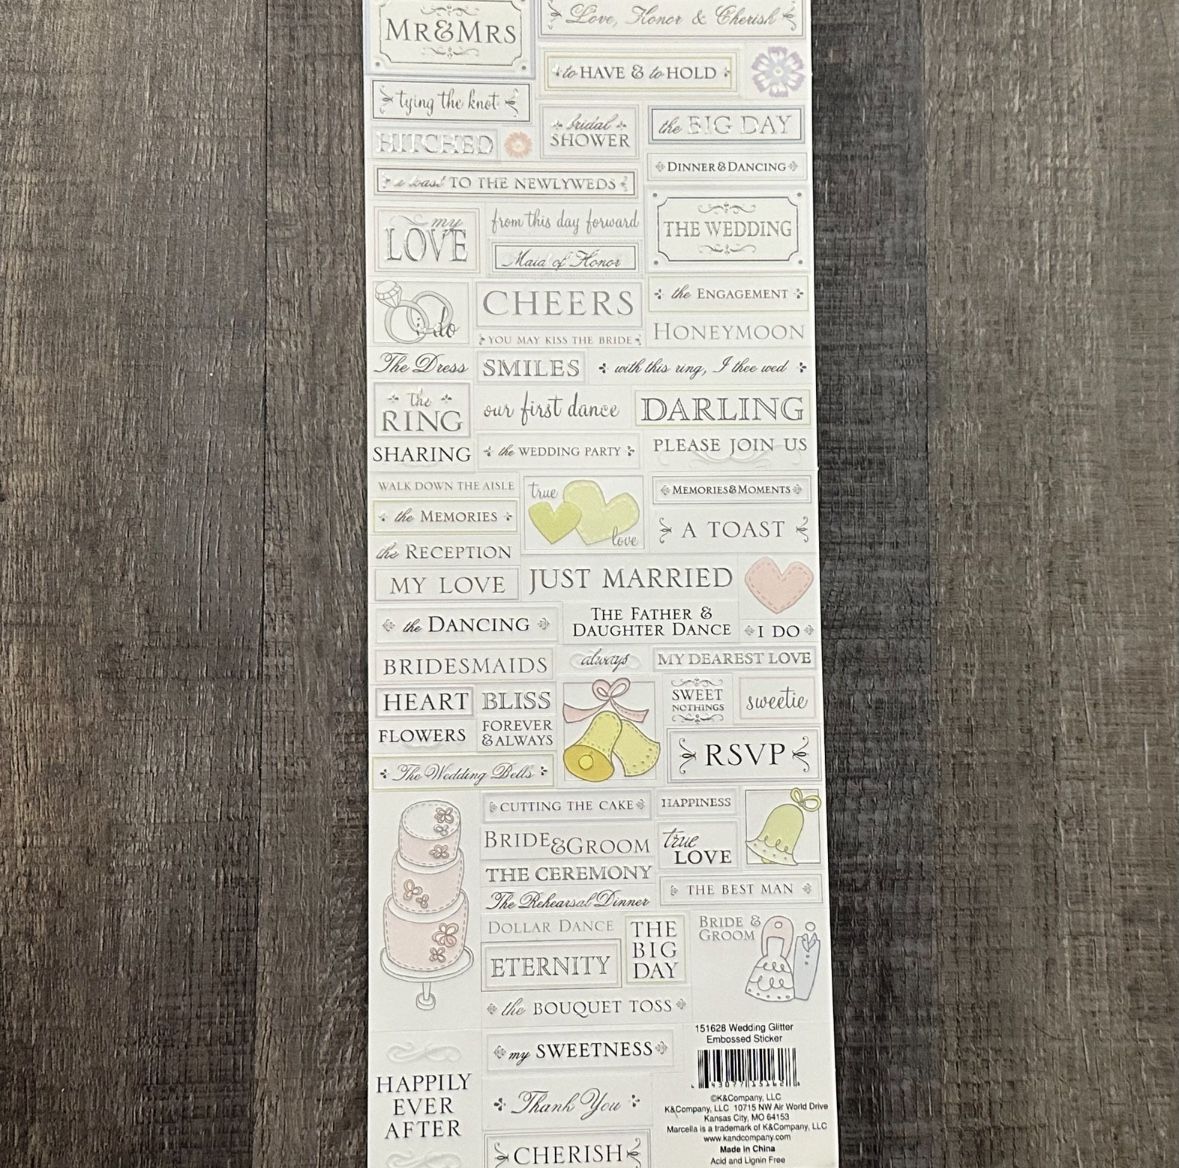 MR&MRS
Love, Honor & Cherish
to HAVE & to HOLD
tying the knot
HITCHED
bridal
SHOWER
the BIG DAY
DINNER&DANCING
a toast TO THE NEWLYWEDS
my
LOVE
from this day forward
THE WEDDING
Maid of Honor
i do
CHEERS
the ENGAGEMENT
YOU MAY KISS THE BRIDE
HONEYMOON
The Dress
SMILES
with this ring, I thee wed
the
RING
our first dance
DARLING
SHARING
the WEDDING PARTY
PLEASE JOIN US
WALK DOWN THE AISLE
true
love
MEMORIES&MOMENTS
the MEMORIES
A TOAST
the RECEPTION
MY LOVE
JUST MARRIED
the DANCING
THE FATHER &
DAUGHTER DANCE
I DO
BRIDESMAIDS
always
MY DEAREST LOVE
HEART
BLISS
SWEET
NOTHINGS
sweetie
FLOWERS
FOREVER
&ALWAYS
RSVP
The Wedding Bells
CUTTING THE CAKE
HAPPINESS
BRIDE&GROOM
true
LOVE
THE CEREMONY
The Rehearsal Dinner
THE BEST MAN
DOLLAR DANCE
THE
BIG
DAY
BRIDE &
GROOM
ETERNITY
the BOUQUET TOSS
my SWEETNESS
HAPPILY
EVER
AFTER
Thank You
CHERISH
151628 Wedding Glitter
Embossed Sticker
©K&Company, LLC
K&Company, LLC 10715 NW Air World Drive
Kansas City, MO 64153
Marcella is a trademark of K&Company, LLC
www.kandcompany.com
Made in China
Acid and Lignin Free